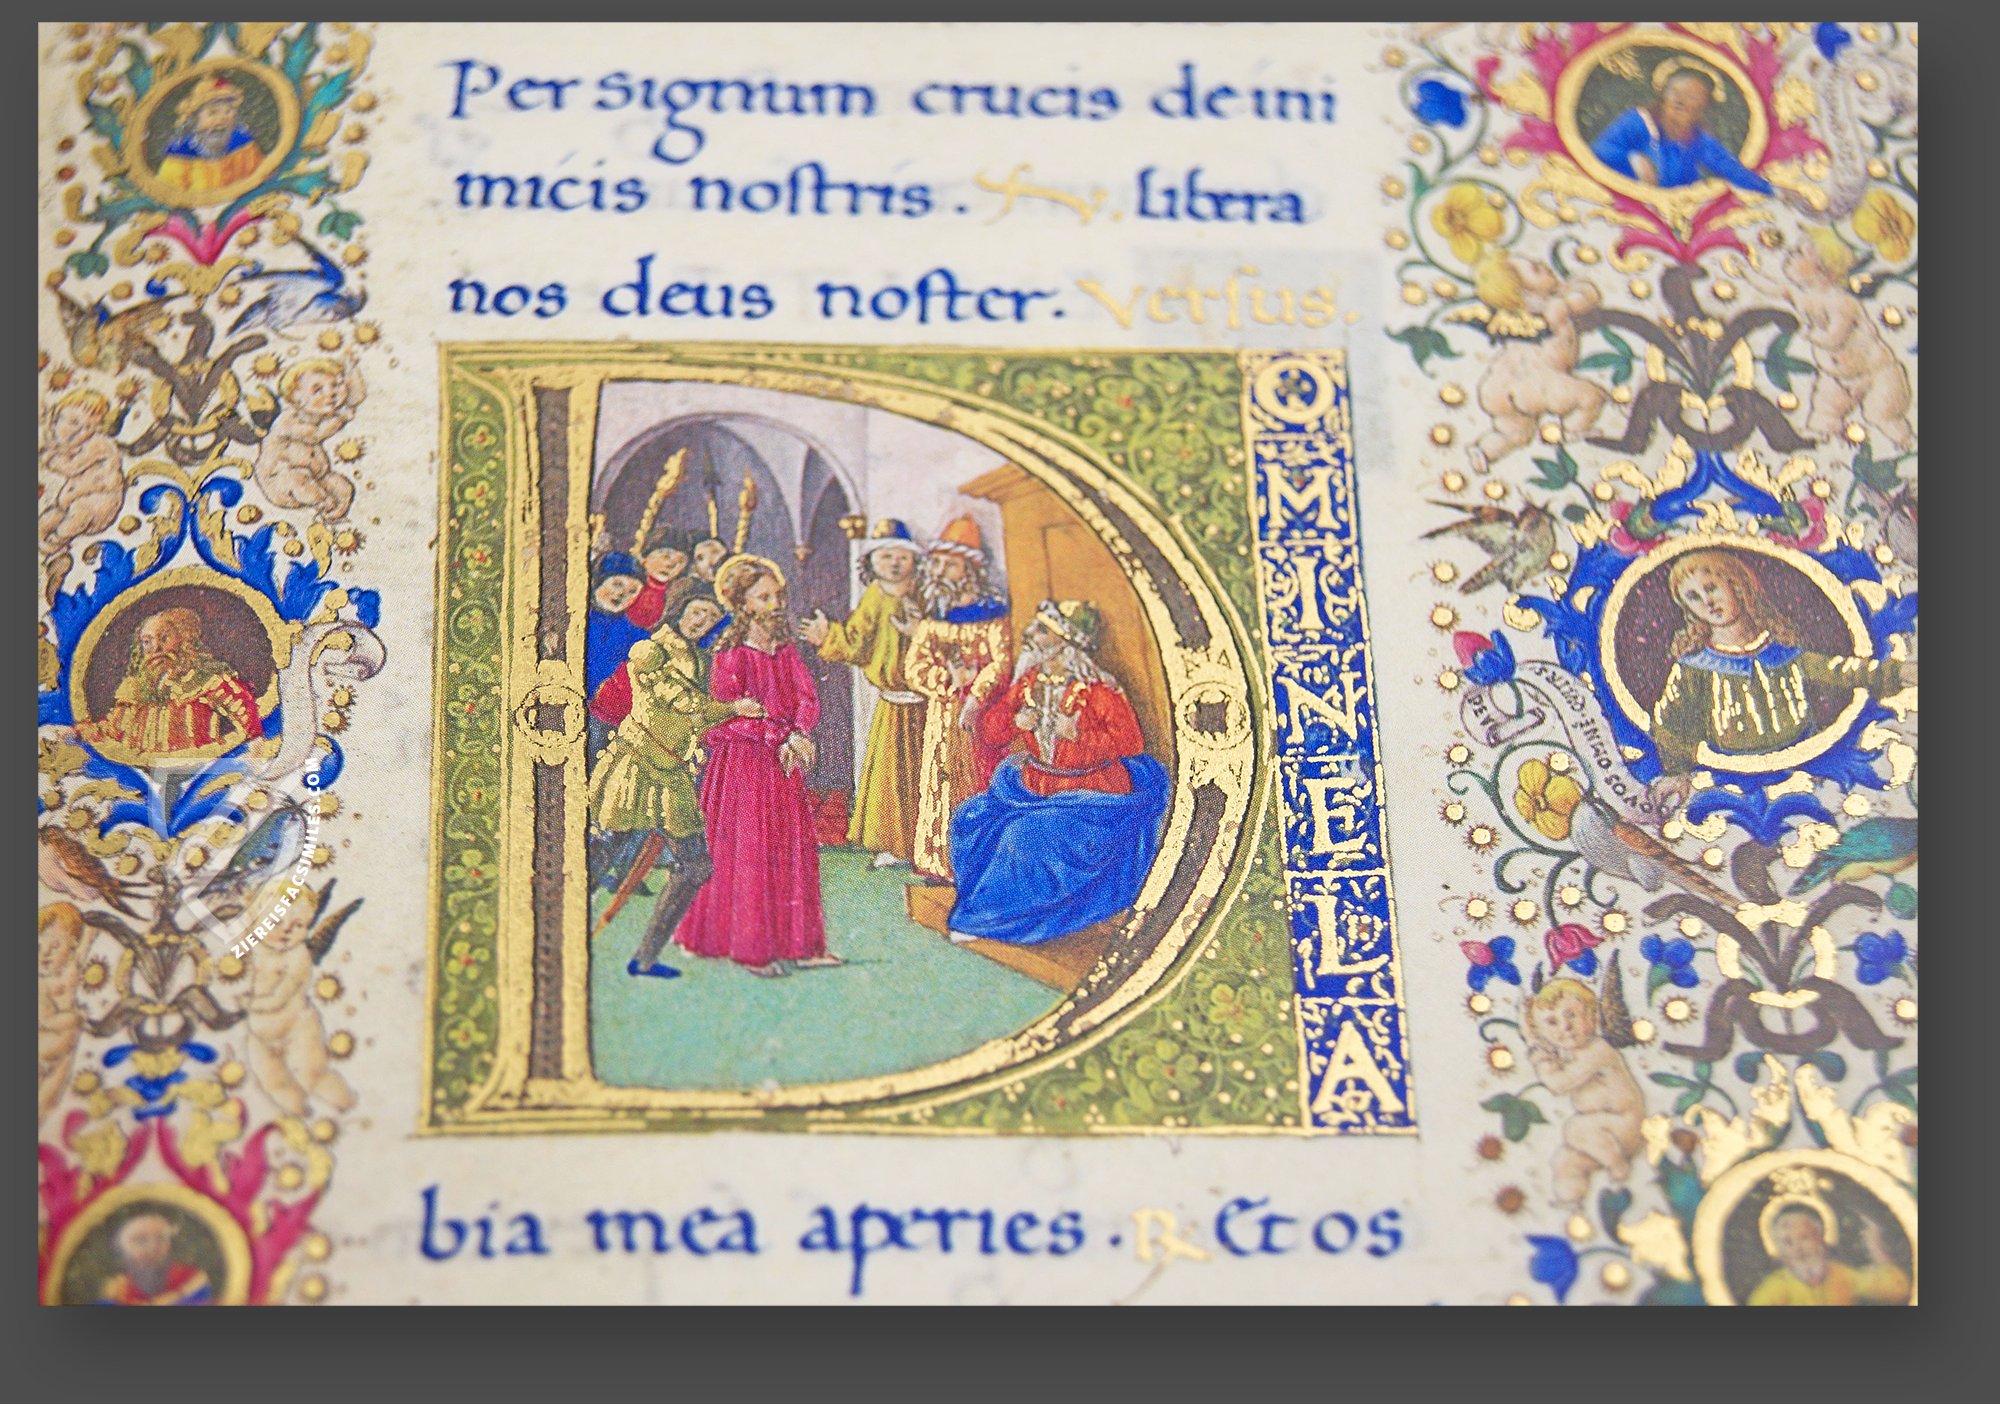 Per signum crucis de ini
micis nostris. libera
nos deus noster. Versus.
D
OMINE LA
bia mea aperies. R Et os
ZIEREISFACSIMILES.COM